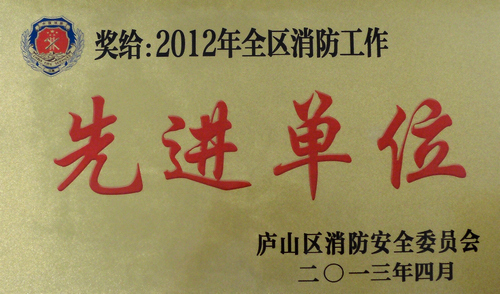 奖给:2012年全区消防工作
先进单位
庐山区消防安全委员会
二〇一三年四月